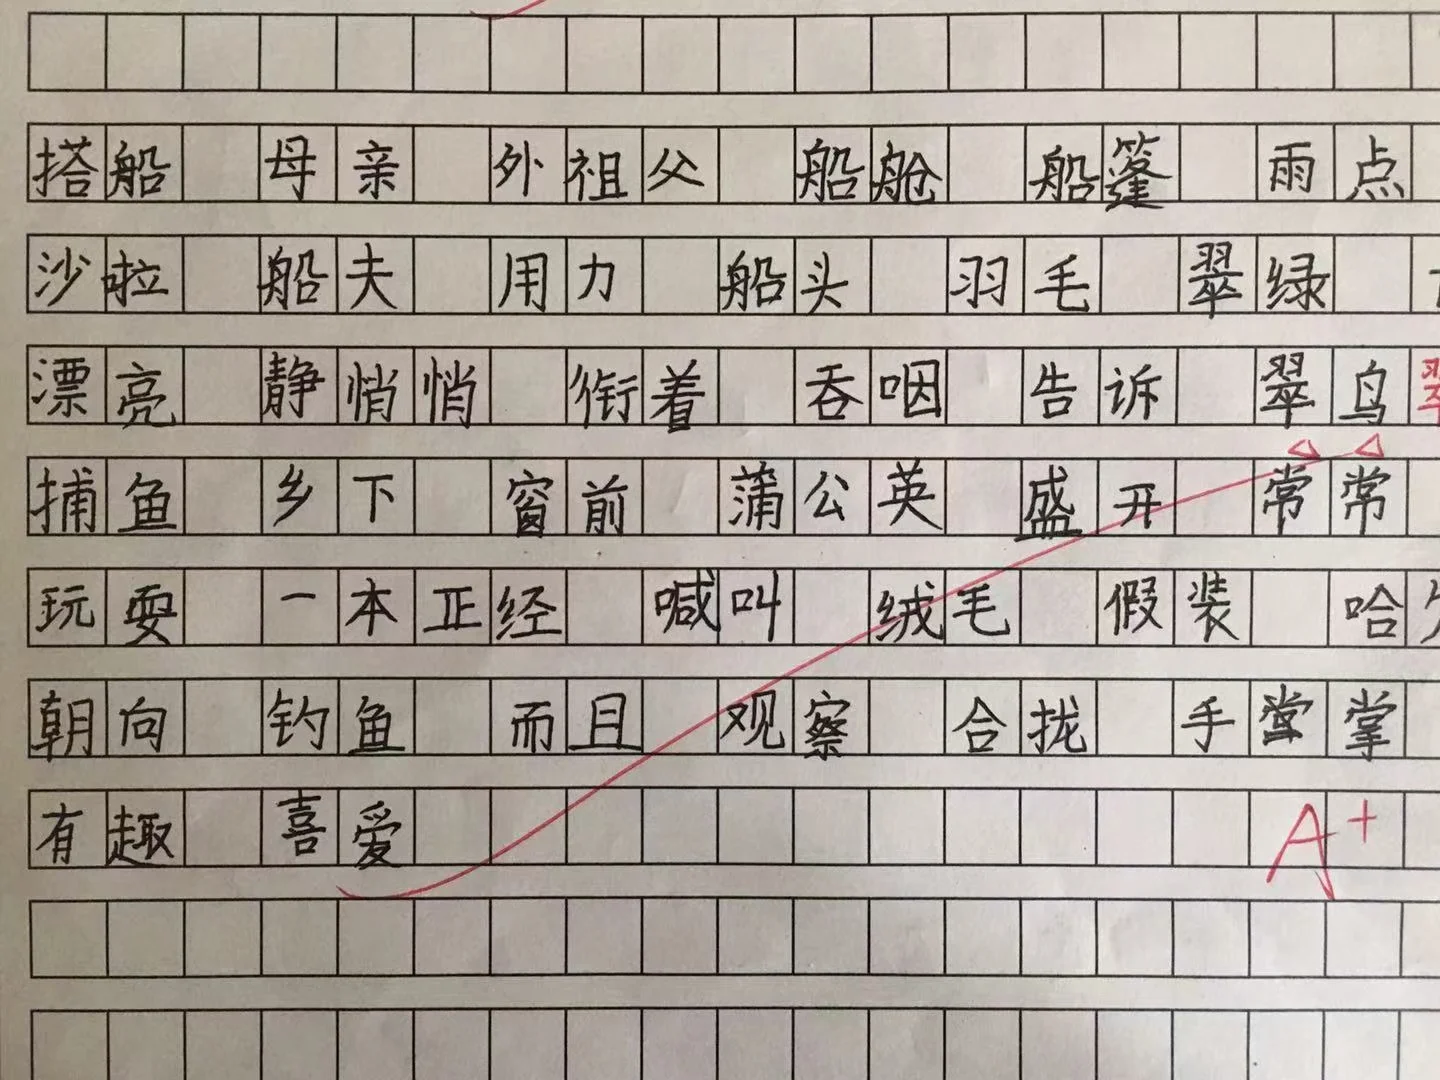 搭船 母亲 外祖父 船舱 船篷 雨点
沙啦 船夫 用力 船头 羽毛 翠绿
漂亮 静悄悄 衔着 吞咽 告诉 翠鸟 翠
捕鱼 乡下 窗前 蒲公英 盛开 常常
玩耍 一本正经 喊叫 绒毛 假装 哈欠
朝向 钓鱼 而且 观察 合拢 手掌
有趣 喜爱
A+